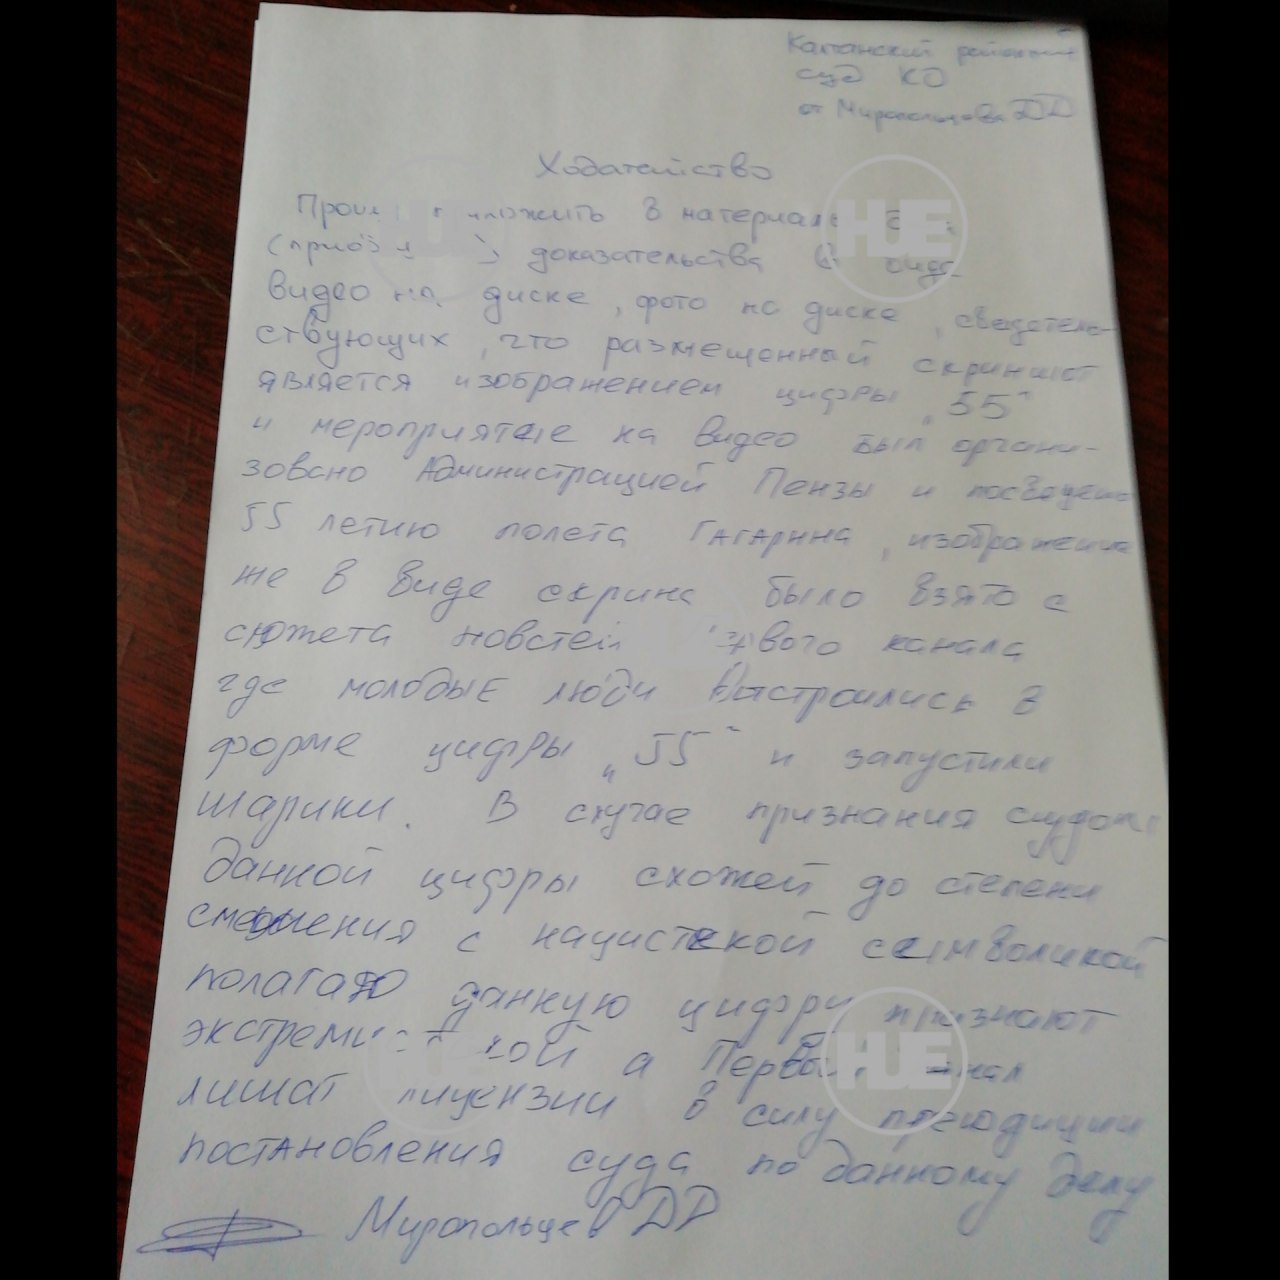 Калтанский районный
суд КО
от Миропольцева ДД
Ходатейство
приложить в материалы
доказательства в виде
видео на диске, фото на диске, свидетель-
ствующих, что размещенный скриншот
является изображением цифры „55"
и мероприятие на видео был органи-
зовано Администрацией Пензы и посвящено
55 летию полета Гагарина, изображение
же в виде скрина было взято с
сюжета новстей канала
где молодые люди выстроились в
форме цифры „55" и запустили
шарики. В случае признания судом
данной цифры схожей до степени
смешения с нацистской символикой
полагаю данную цифру признают
а Первый канал
лишат лицензии в силу преюдиции
постановления суда по данному делу
Миропольцев ДД
HUE
HUE